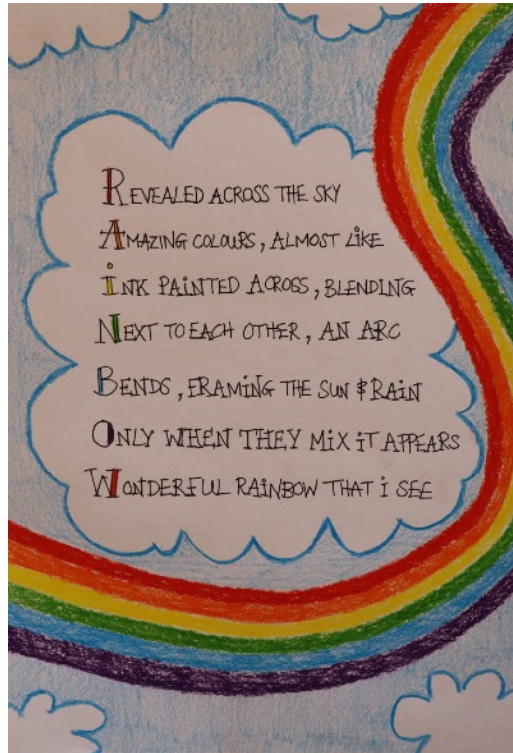 REVEALED ACROSS THE SKY
AMAZING COLOURS, ALMOST LIKE
iNK PAiNTED ACROSS, BLENDiNG
NEXT TO EACH OTHER, AN ARC
BENDS, FRAMiNG THE SUN & RAiN
ONLY WHEN THEY MiX iT APPEARS
WONDERFUL RAiNBOW THAT i SEE